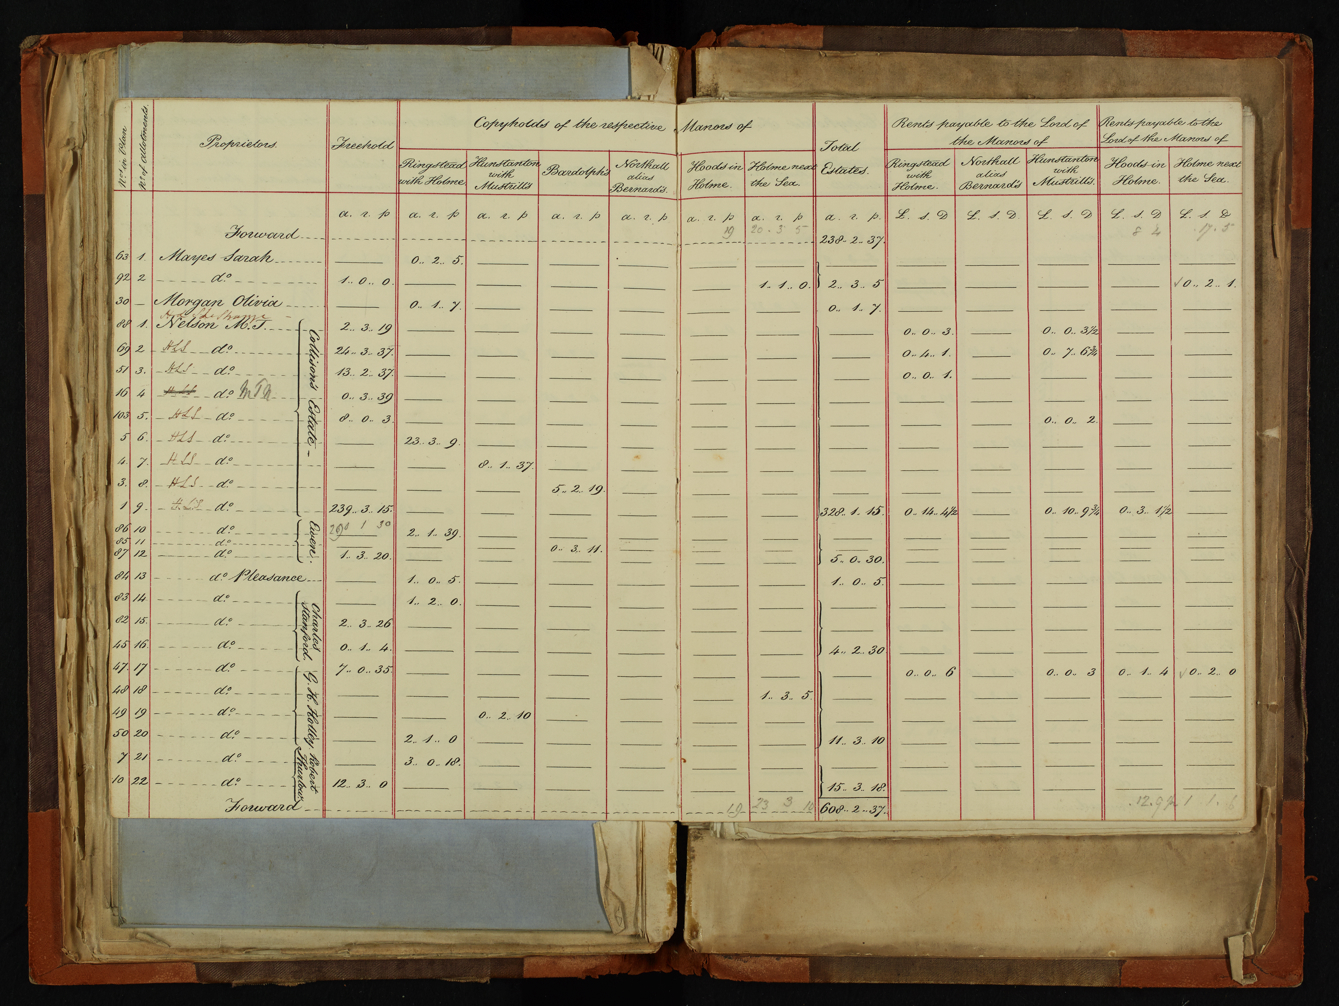 Nos in Plan. No of allotments. Proprietors. Freehold Copyholds of the respective Manors of Total Estates. Rents payable to the Lord of the Manors of Rents payable to the Lord of the Manors of
Ringstead with Holme. Hunstanton with Mustrills Bardolphs Northall alias Bernard's. Hoods in Holme. Holme next the Sea. Ringstead with Holme. Northall alias Bernard's Hunstanton with Mustrills. Hoods in Holme. Holme next the Sea.
a. r. p a. r. p a. r. p a. r. p a. r. p a. r. p a. r. p a. r. p. £. s. D £. s. D. £. s. D £. s. D £. s. D
Forward 19 20 3 5 238.. 2.. 37. 8 4 17. 5
63 1. Mayes Sarah 0.. 2.. 5.
92 2 do 1.. 0.. 0. 1.. 1.. 0. 2.. 3.. 5 √0.. 2.. 1.
30 — Morgan Olivia 0.. 1.. 7. 0.. 1.. 7.
88 1. Nelson M. T. 2.. 3.. 19 0.. 0.. 3. 0.. 0.. 3½
69 2 HLS do 24.. 3.. 37. 0.. 4.. 1. 0.. 7.. 6¾
51 3. HLS do 13.. 2.. 37. 0.. 0.. 1.
16 4 HLS do 0.. 3.. 39
103 5. HLS do 8.. 0.. 3. 0.. 0.. 2.
5 6. HLS do 23.. 3.. 9.
4. 7. HLS do 8.. 1.. 37.
3. 8. HLS do 5.. 2.. 19.
1 9. HLS do 239.. 3.. 15. 328.. 1.. 15. 0.. 14.. 4½ 0.. 10.. 9¾ 0.. 3.. 1½
Collison's Estate
290 1 30
86 10 do 2.. 1.. 39.
85 11 do 0.. 3.. 11.
87 12 do 1.. 3.. 20. 5.. 0.. 30.
Ewen.
84 13 do Pleasance 1.. 0.. 5. 1.. 0.. 5.
83 14 do 1.. 2.. 0.
82 15. do 2.. 3.. 26
45 16 do 0.. 1.. 4. 4.. 2.. 30
Charles Stanford.
47. 17 do 7.. 0.. 35. 0.. 0.. 6 0.. 0.. 3 0.. 1.. 4 √0.. 2.. 0
48 18 do 1.. 3.. 5
49 19 do 0.. 2.. 10
50 20 do 2.. 1.. 0 11.. 3.. 10
G. H. Holley
7 21 do 3.. 0.. 18.
10 22 do 12.. 3.. 0 15.. 3.. 18.
Robert Thurlow
Forward 19 23 3 608.. 2.. 37. 12. 9½ 1 1.